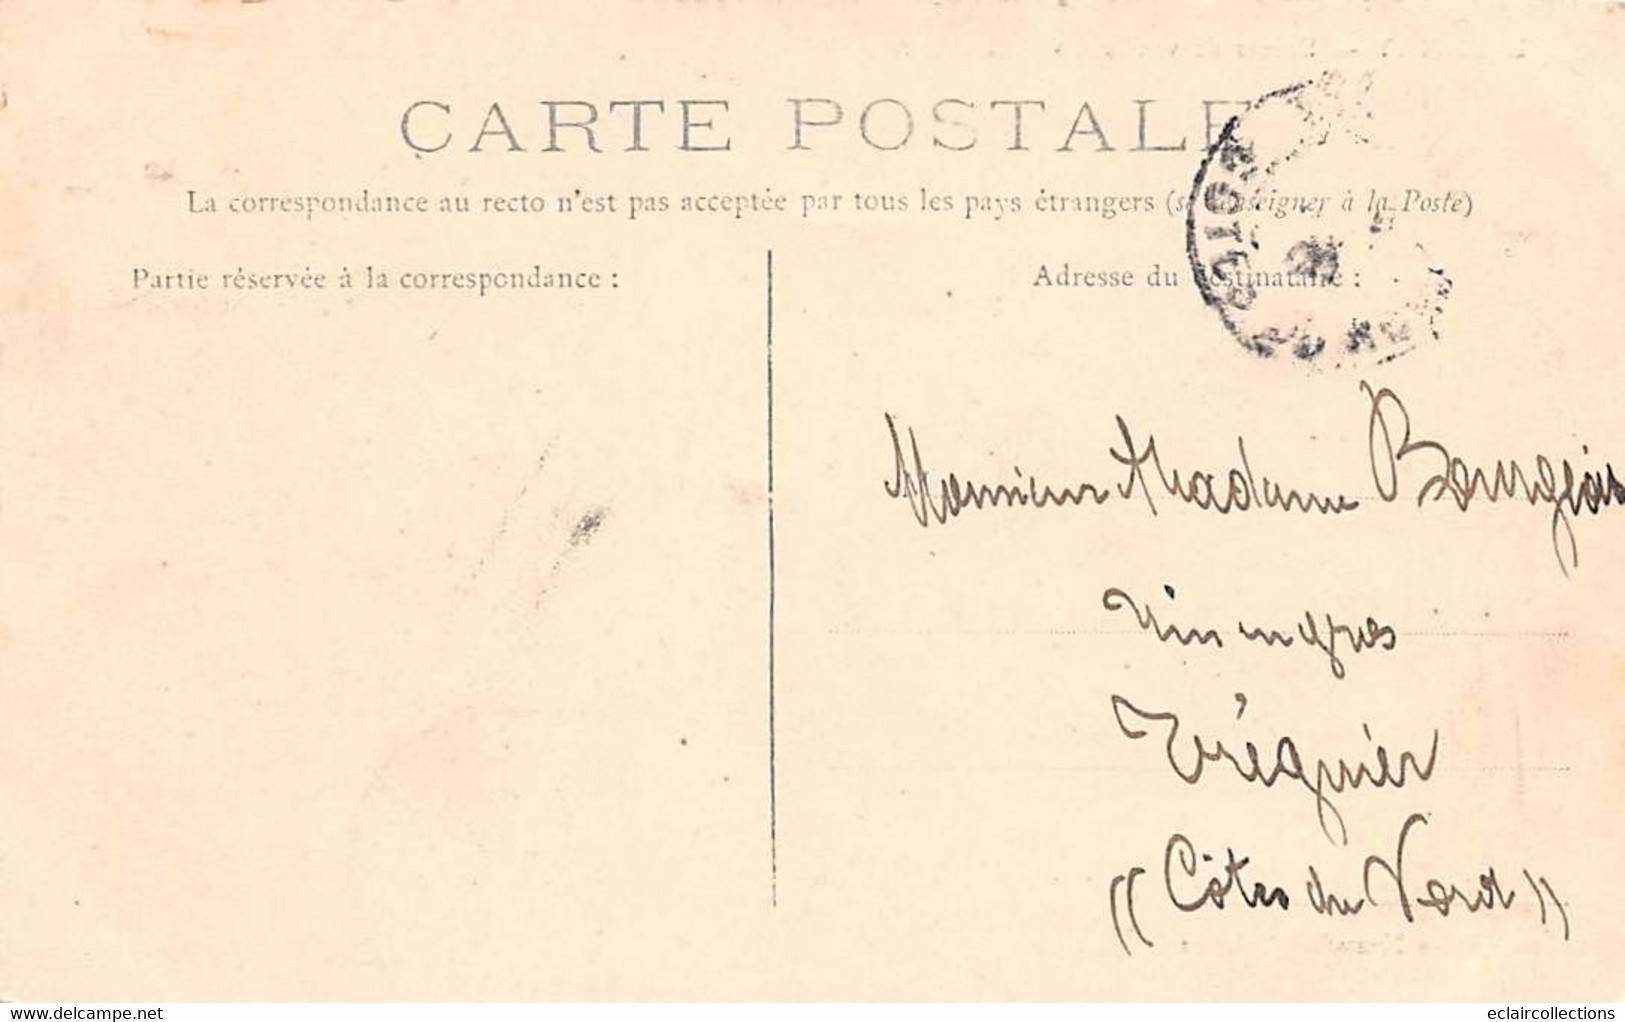 CARTE POSTALE
La correspondance au recto n'est pas acceptée par tous les pays étrangers (se renseigner à la Poste)
Partie réservée à la correspondance :
Adresse du destinataire :
Monsieur Madame Bourgeois
Vin en gros
Tréguier
((Côtes du Nord))
www.delcampe.net
eclaircollections